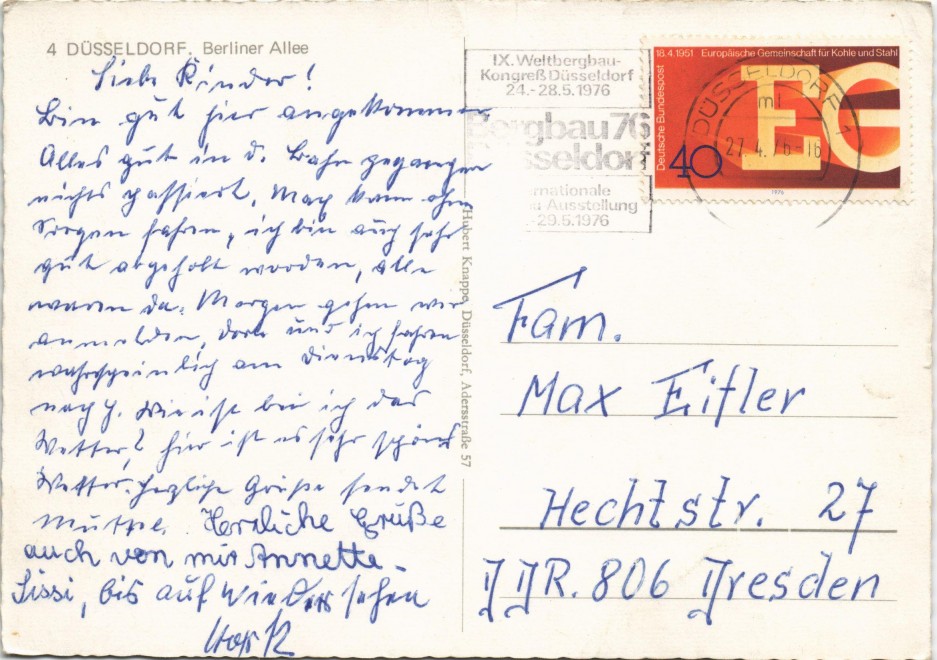 4 DÜSSELDORF. Berliner Allee
Liebe Kinder!
Bin gut hier angekommen
Alles gut in d. Bahn gegangen
nichts passiert. Max kann ohne
Sorgen fahren, ich bin auch sehr
gut abgeholt worden, alle
waren da. Morgen gehen wir
anmelden, und ich fahren
wahrscheinlich am Dienstag
nach H. Wie ist bei ich das
Wetter? hier ist es sehr schönes
Wetter. Herzliche Grüße sendet
Herzliche Grüße
auch von mir Annette-
Sissi, bis auf Wiedersehen
Hubert Knappe, Düsseldorf, Adersstraße 57
IX. Weltbergbau-
Kongreß Düsseldorf
24.-28.5.1976
Bergbau 76
Düsseldorf
Internationale
Ausstellung
-29.5.1976
18.4.1951 Europäische Gemeinschaft für Kohle und Stahl
Deutsche Bundespost
EG
40
1976
DÜSSELDORF 1
mi
27.4.76-16
Fam.
Max Eifler
Hechtstr. 27
DDR. 806 Dresden